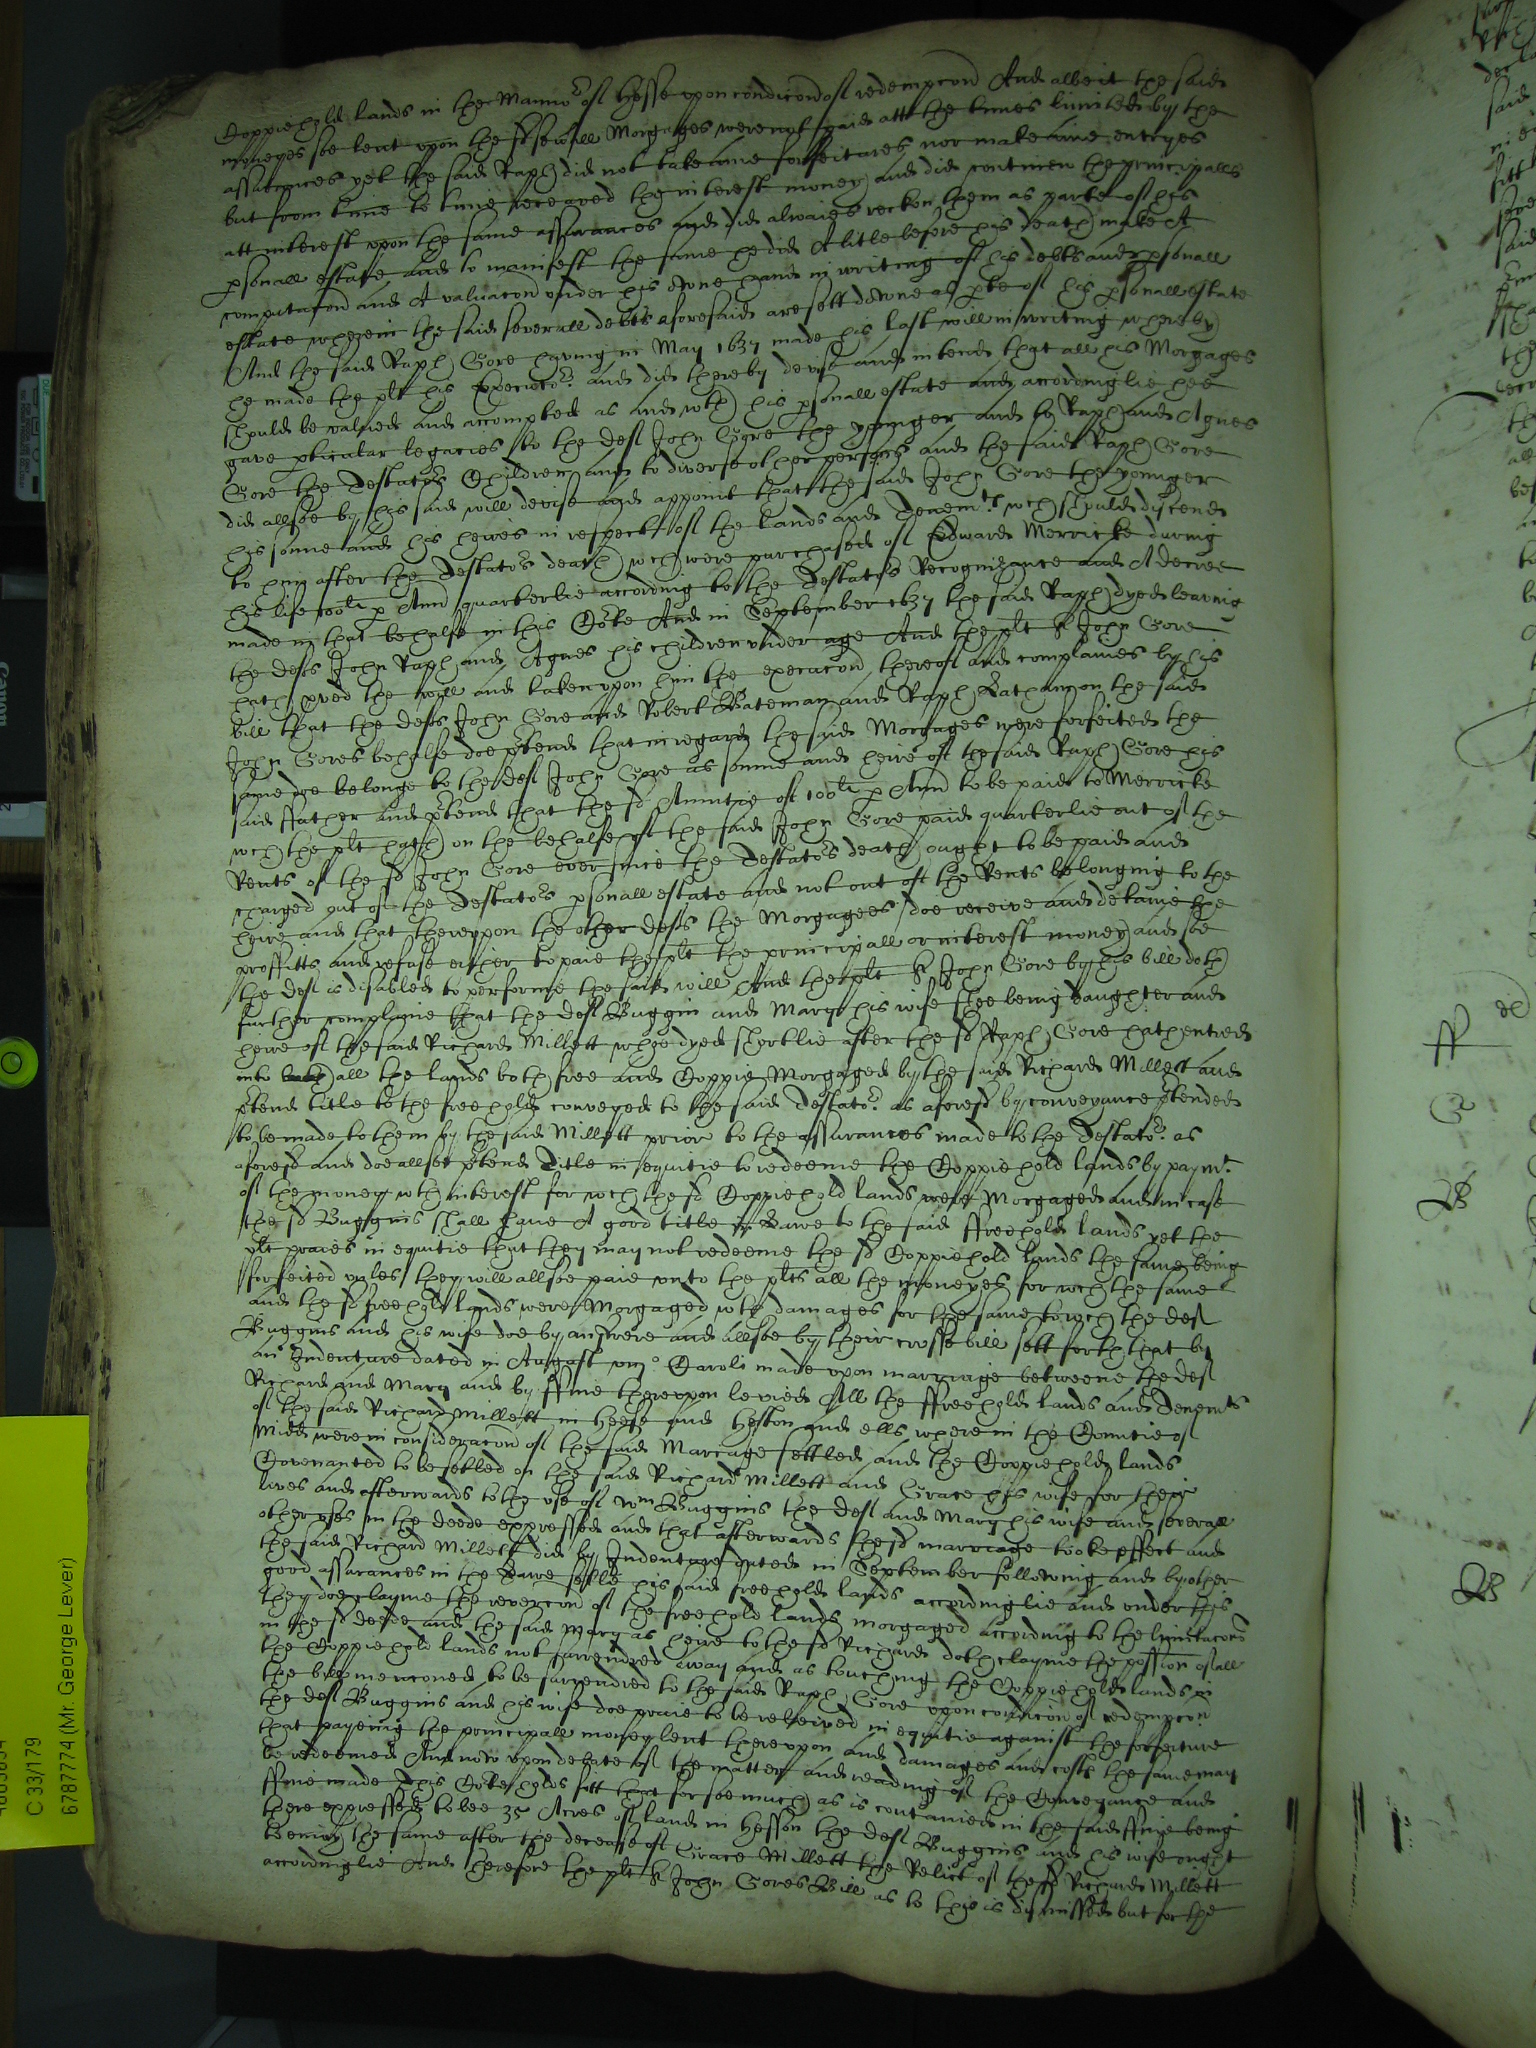 Coppiehold lands in the Mannor of Hesse upon condicond of redempcond And albeit the said
moneyes soe lent upon the sd severall Morgages were not paid att the times limited by the
assurances yet the said Raph did not take anie forfeitures nor make anie entryes
but from time to time received the interest money and did continew the principalls
att interest upon the same assurances and did alwaies reckon them as parte of his
psonall estate and to manifest the same he did A litle before his death make A
computacond and A valuacond under his owne hand in writing of his debts and psonall
estate wherein the said severall debts aforesaid are sett downe as pte of his psonall estate
And the said Raph Gore having in May 1637 made his last will in writing whereby
he made the plt his Executor and did thereby devise and intend that all his Morgages
should be valued and accompted as and wth his psonall estate and accordinglie hee
gave pticular legacies to the deft John Gore the younger and to Raph and Agnes
Gore the Testators Children and to diverse other persons and the said Raph Gore
did allsoe by his said will devise and appoint that the said John Gore the younger
his sonne and his heires in respect of the lands and Tenemts wch should discend
to him after the Testators death wch were purchased of Edward Merricke during
his life 100li p Ann quarterlie according to the Testators Recognizance and A decree
made in that behalfe in this Cote And in September 1637 the said Raph dyed leaving
the defts John Raph and Agnes his children under age And the plt Sr John Gore
hath pved the will and taken upon him the execucond thereof and complaines by his
bill that the defts John Gore and Robert Bateman and Raph Latham on the said
John Gores behalfe doe ptend that in regard the said Morgages were forfeited the
same doe belonge to the deft John Gore as sonne and heire of the said Raph Gore his
said ffather and ptend that the sd Annuitie of 100li p Ann to be paid to Merricke
wch the plt hath on the behalfe of the said John Gore paid quarterlie out of the
Rents of the sd John Gore ever since the Testators death ought to be paid and
charged out of the Testators psonall estate and not out of the Rents belonging to the
heire and that thereupon the other defts the Morgagees doe receive and detaine the
proffitts and refuse either to paie the plt the principall or interest money and soe
the deft is disabled to performe the said will And the plt Sr John Gore by his bill doth
further complaine that the deft Buggin and Mary his wife shee being daughter and
heire of the said Richard Millett whoe dyed shortlie after the sd Raph Gore hath entred
into all the lands both free and Coppie Morgaged by the said Richard Millett and
ptend title to the freehold conveyed to the said Testator as aforesd by conveyance ptended
to be made to them by the said Millett prior to the assurances made to the Testator as
aforesd and doe allsoe ptend Title in equitie to redeeme the Coppiehold lands by paymt
of the money wth interest for wch the sd Coppiehold lands were Morgaged and in case
the sd Buggins shall have A good title in Lawe to the said ffreehold lands yet the
plt praies in equitie that they may not redeeme the sd Coppiehold lands the same being
forfeited unles they will allsoe paie unto the plts all the moneyes for wch the same
and the sd freehold lands were Morgaged wth damages for the same to wch the deft
Buggins and his wife doe by answere and allsoe by their crosse bill sett forth that by
an Indenture dated in August viijo Caroli made upon marriage betweene the deft
Richard and Mary and by ffine thereupon levied All the ffreehold lands and Tenemts
of the said Richard Millett in Heese and Heston and ells where in the Countie of
Midd were in consideracond of the said Marriage settled and the Coppiehold lands
Covenanted to be setled on the said Richard Millett and Grace his wife for their
lives and afterwards to the use of Wm Buggins the deft and Mary his wife and severall
other uses in the deede expressed and that afterwards the sd marriage tooke effect and
the said Richard Millett did by Indenture dated in September following and by other
good assurances in the Lawe setle his said freehold lands accordinglie and under this
they doe clayme the revercond of the freehold lands morgaged according to the limitacond
in the sd deede and the said Mary as heire to the sd Richard doth clayme the possion of all
the Coppiehold lands not surrendred away and as touching the Coppiehold lands in
the bill mencioned to be surrendred to the said Raph Gore upon condicon of redempcon
the deft Buggins and his wife doe praie to be releived in equitie against the forfeiture
that payeing the principall money lent thereupon and damages and costs the same may
be redeemed And now upon debate of the matter and reading of the Conveyance and
ffine made This Cote holds fitt that for soe much as is contained in the said ffine being
there expressed to bee 35 Acres of land in Hesson the deft Buggins and his wife ought
to enjoy the same after the decease of Grace Millett the Relict of the sd Richard Millett
accordinglie And therefore the plt Sr John Gores Bill as to this is dismissed but for the
C33/179
6787774 (Mr. George Lever)
Canon